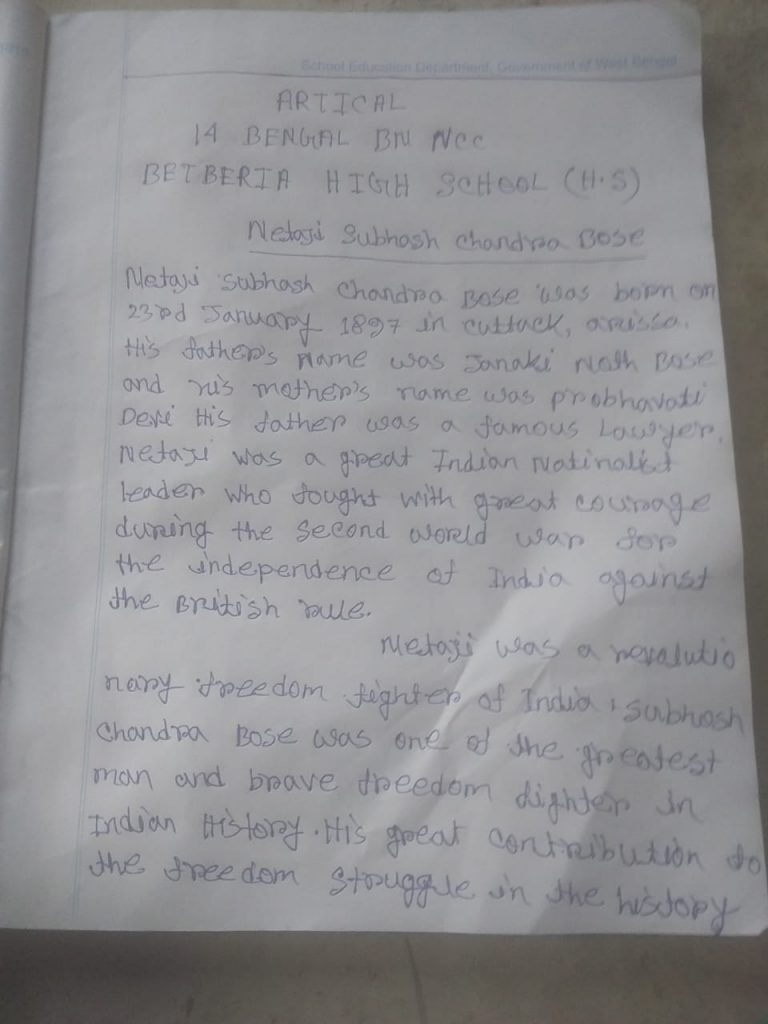 School Education Department, Government of West Bengal
ARTICAL
14 BENGAL BN NCC
BETBERIA HIGH SCHOOL (H.S)
Netaji Subhash Chandra BOSE
Netaji Subhash Chandra BOSE was born on
23rd January 1897 in cuttack, orissa.
His father's Name was Janaki Nath Bose
and his mother's name was probhavati
Devi His father was a famous Lawyer.
Netaji was a great Indian Natinalist
leader who fought with great courage
during the second world war for
the independence of India against
the British rule.
Netaji was a revolutio
nary freedom fighter of India, Subhash
Chandra Bose was one of the greatest
man and brave freedom fighter in
Indian History. His great contribution to
the freedom struggle in the history